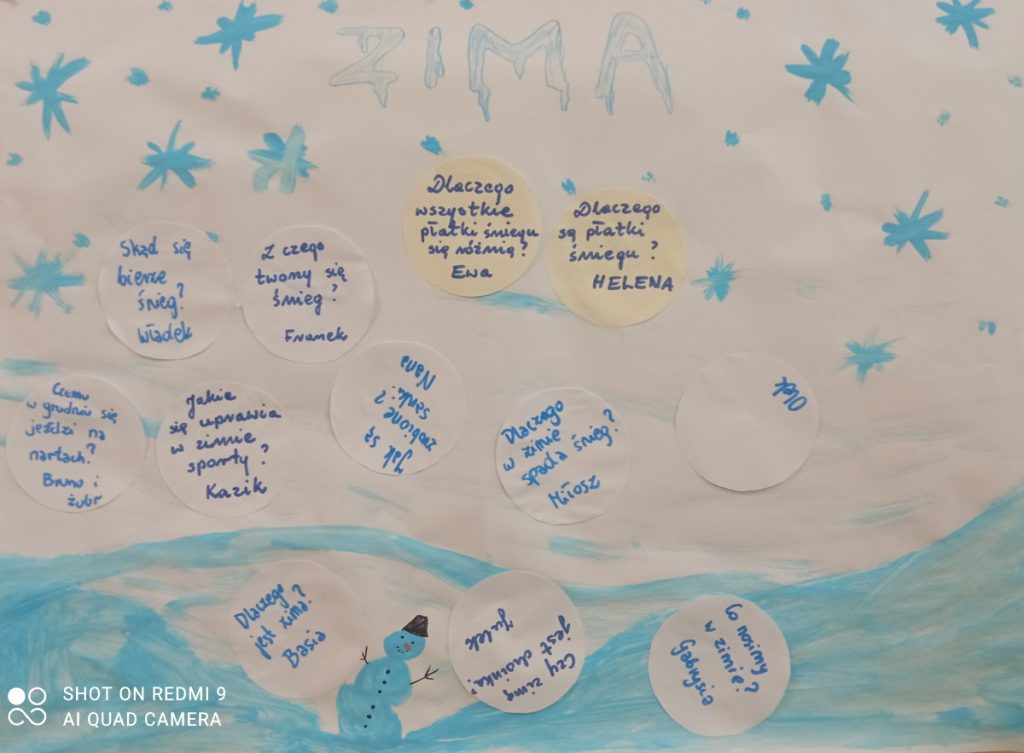 ZIMA
Dlaczego
wszystkie
płatki śniegu
się różnią?
Ewa
Dlaczego
są płatki
śniegu?
HELENA
Skąd się
bierze
śnieg?
Władek
Z czego
tworzy się
śnieg?
Franek
Czemu
w grudniu się
jeździ na
nartach?
Bruno i
żubr
Jakie
się uprawia
w zimie
sporty?
Kazik
Jak są
zrobione
sanki?
Nana
Dlaczego
w zimie
spada śnieg?
Miłosz
Olek
Dlaczego
jest zima?
Basia
Czy zimą
jest choinka?
Julek
Co nosimy
w zimie?
Gabrysia
SHOT ON REDMI 9
AI QUAD CAMERA